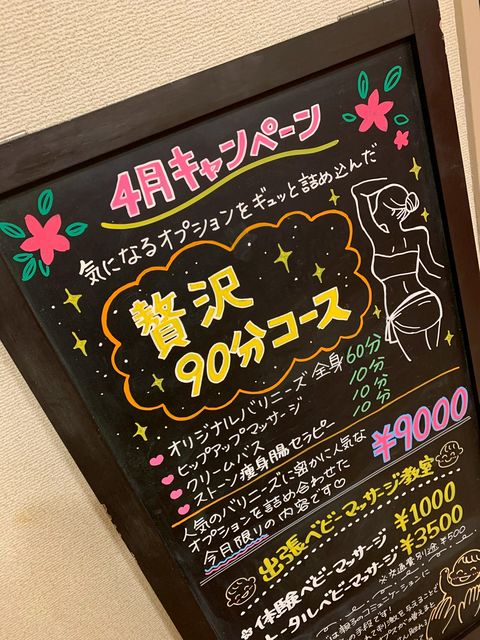 4月キャンペーン
気になるオプションをギュッと詰め込んだ
贅沢
90分コース
オリジナルバリニーズ 全身60分
ヒップアップマッサージ 10分
クリームバス 10分
ストーン痩身腸セラピー 10分
人気のバリニーズに密かに人気な
オプションを詰め合わせた
今月限りの内容です♡
¥9000
出張ベビーマッサージ教室
体験ベビーマッサージ ¥1000
トータルベビーマッサージ ¥3500
※交通費別途¥500
は親子のコミュニケーションに
の手段です!